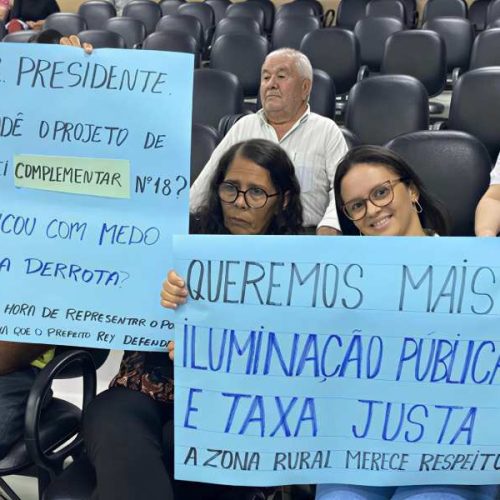 . PRESIDENTE.
DÊ O PROJETO DE
EI COMPLEMENTAR Nº18?
ICOU COM MEDO
A DERROTA?
HORA DE REPRESENTAR O PO
NA QUE O PREFEITO REY DEFENDA
QUEREMOS MAIS
ILUMINAÇÃO PÚBLICA
E TAXA JUSTA
A ZONA RURAL MERECE RESPEITO